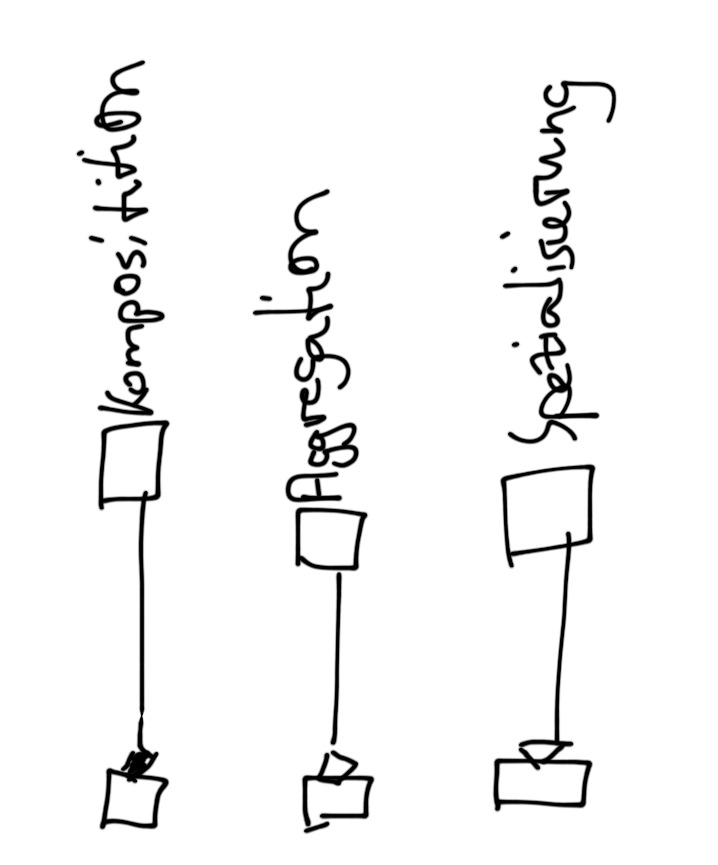 Komposition
Aggregation
Spezialisierung